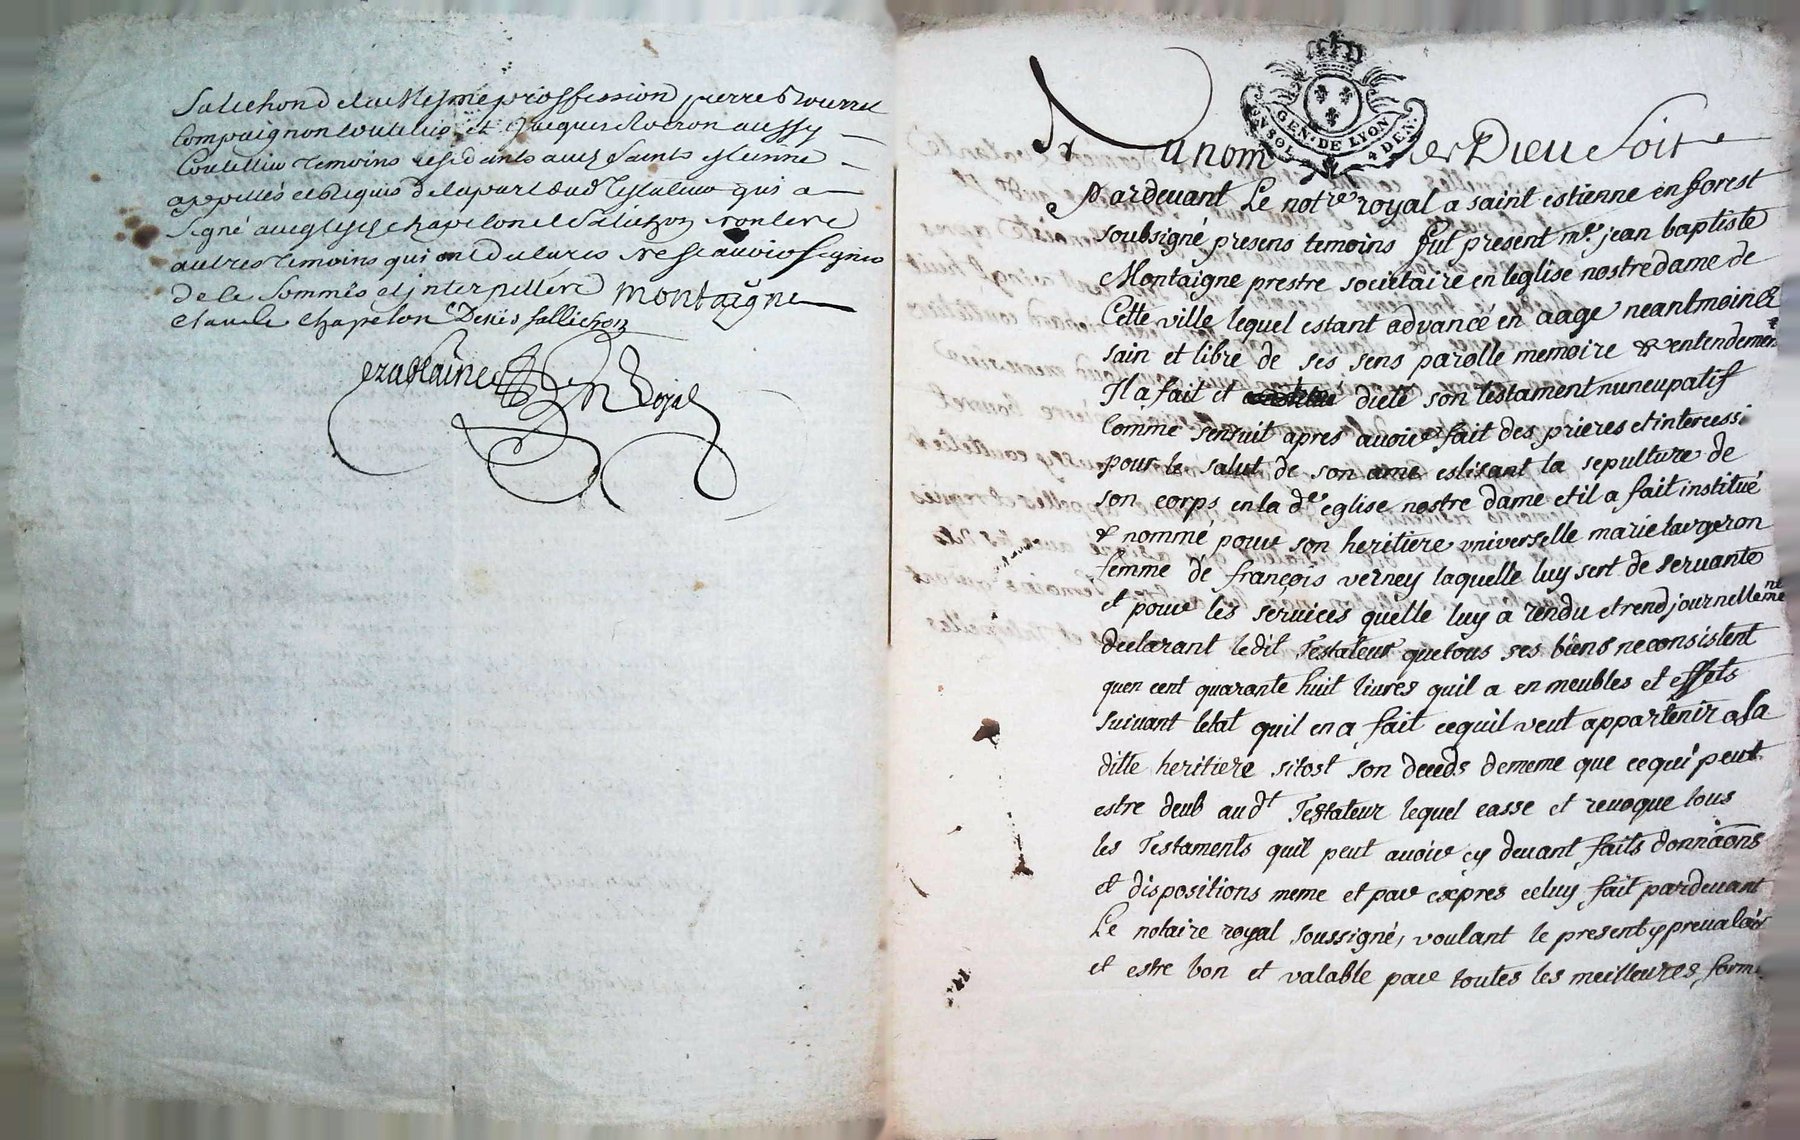 Salichon de la Mesme proffession pierre Bourret
Compaignon Coutelier et Jacques Rocron aussy
Coutellier temoins residants audt Saint estienne
appellés et Requis de la part dud Testateur qui a
Signé avec lesds chapelon et Salichon non les
autres temoins qui ont declarés ne scauoir signer
de ce Sommés et interpellés montaigne
Claude Chapelon Denis Sallichon
Royal
Au nom de Dieu Soit
GEN. DE LYON
UN SOL 4 DEN.
Pardeuant Le notre royal a saint estienne en forest
soubsigné presens temoins fut present mre jean baptiste
Montaigne prestre societaire en leglise nostre dame de
Cette ville lequel estant advancé en aage neantmoins
sain et libre de ses sens parolle memoire & entendement
Il a fait et dicté son testament nuncupatif
Comme sensuit apres auoir fait des prieres et intercessi
pour le salut de son ame eslisant la sepulture de
son corps en la de eglise nostre dame et il a fait institué
& nommé pour son heritiere vniverselle marie laurgeron
femme de françois verney laquelle luy sert de seruante
et pour les services quelle luy a rendu et rend journellement
declarant ledit Testateur que tous ses biens ne consistent
quen cent quarante huit liures quil a en meubles et effets
suiuant letat quil en a fait ce quil veut appartenir a la
ditte heritiere sitost son deceds de meme que ce qui peut
estre deub au dt Testateur lequel casse et reuoque tous
les Testaments quil peut auoir cy deuant faits donnaons
et dispositions meme et par expres celuy fait pardeuant
Le notaire royal soussigné, voulant le present y preualoir
et estre bon et valable par toutes les meilleures form